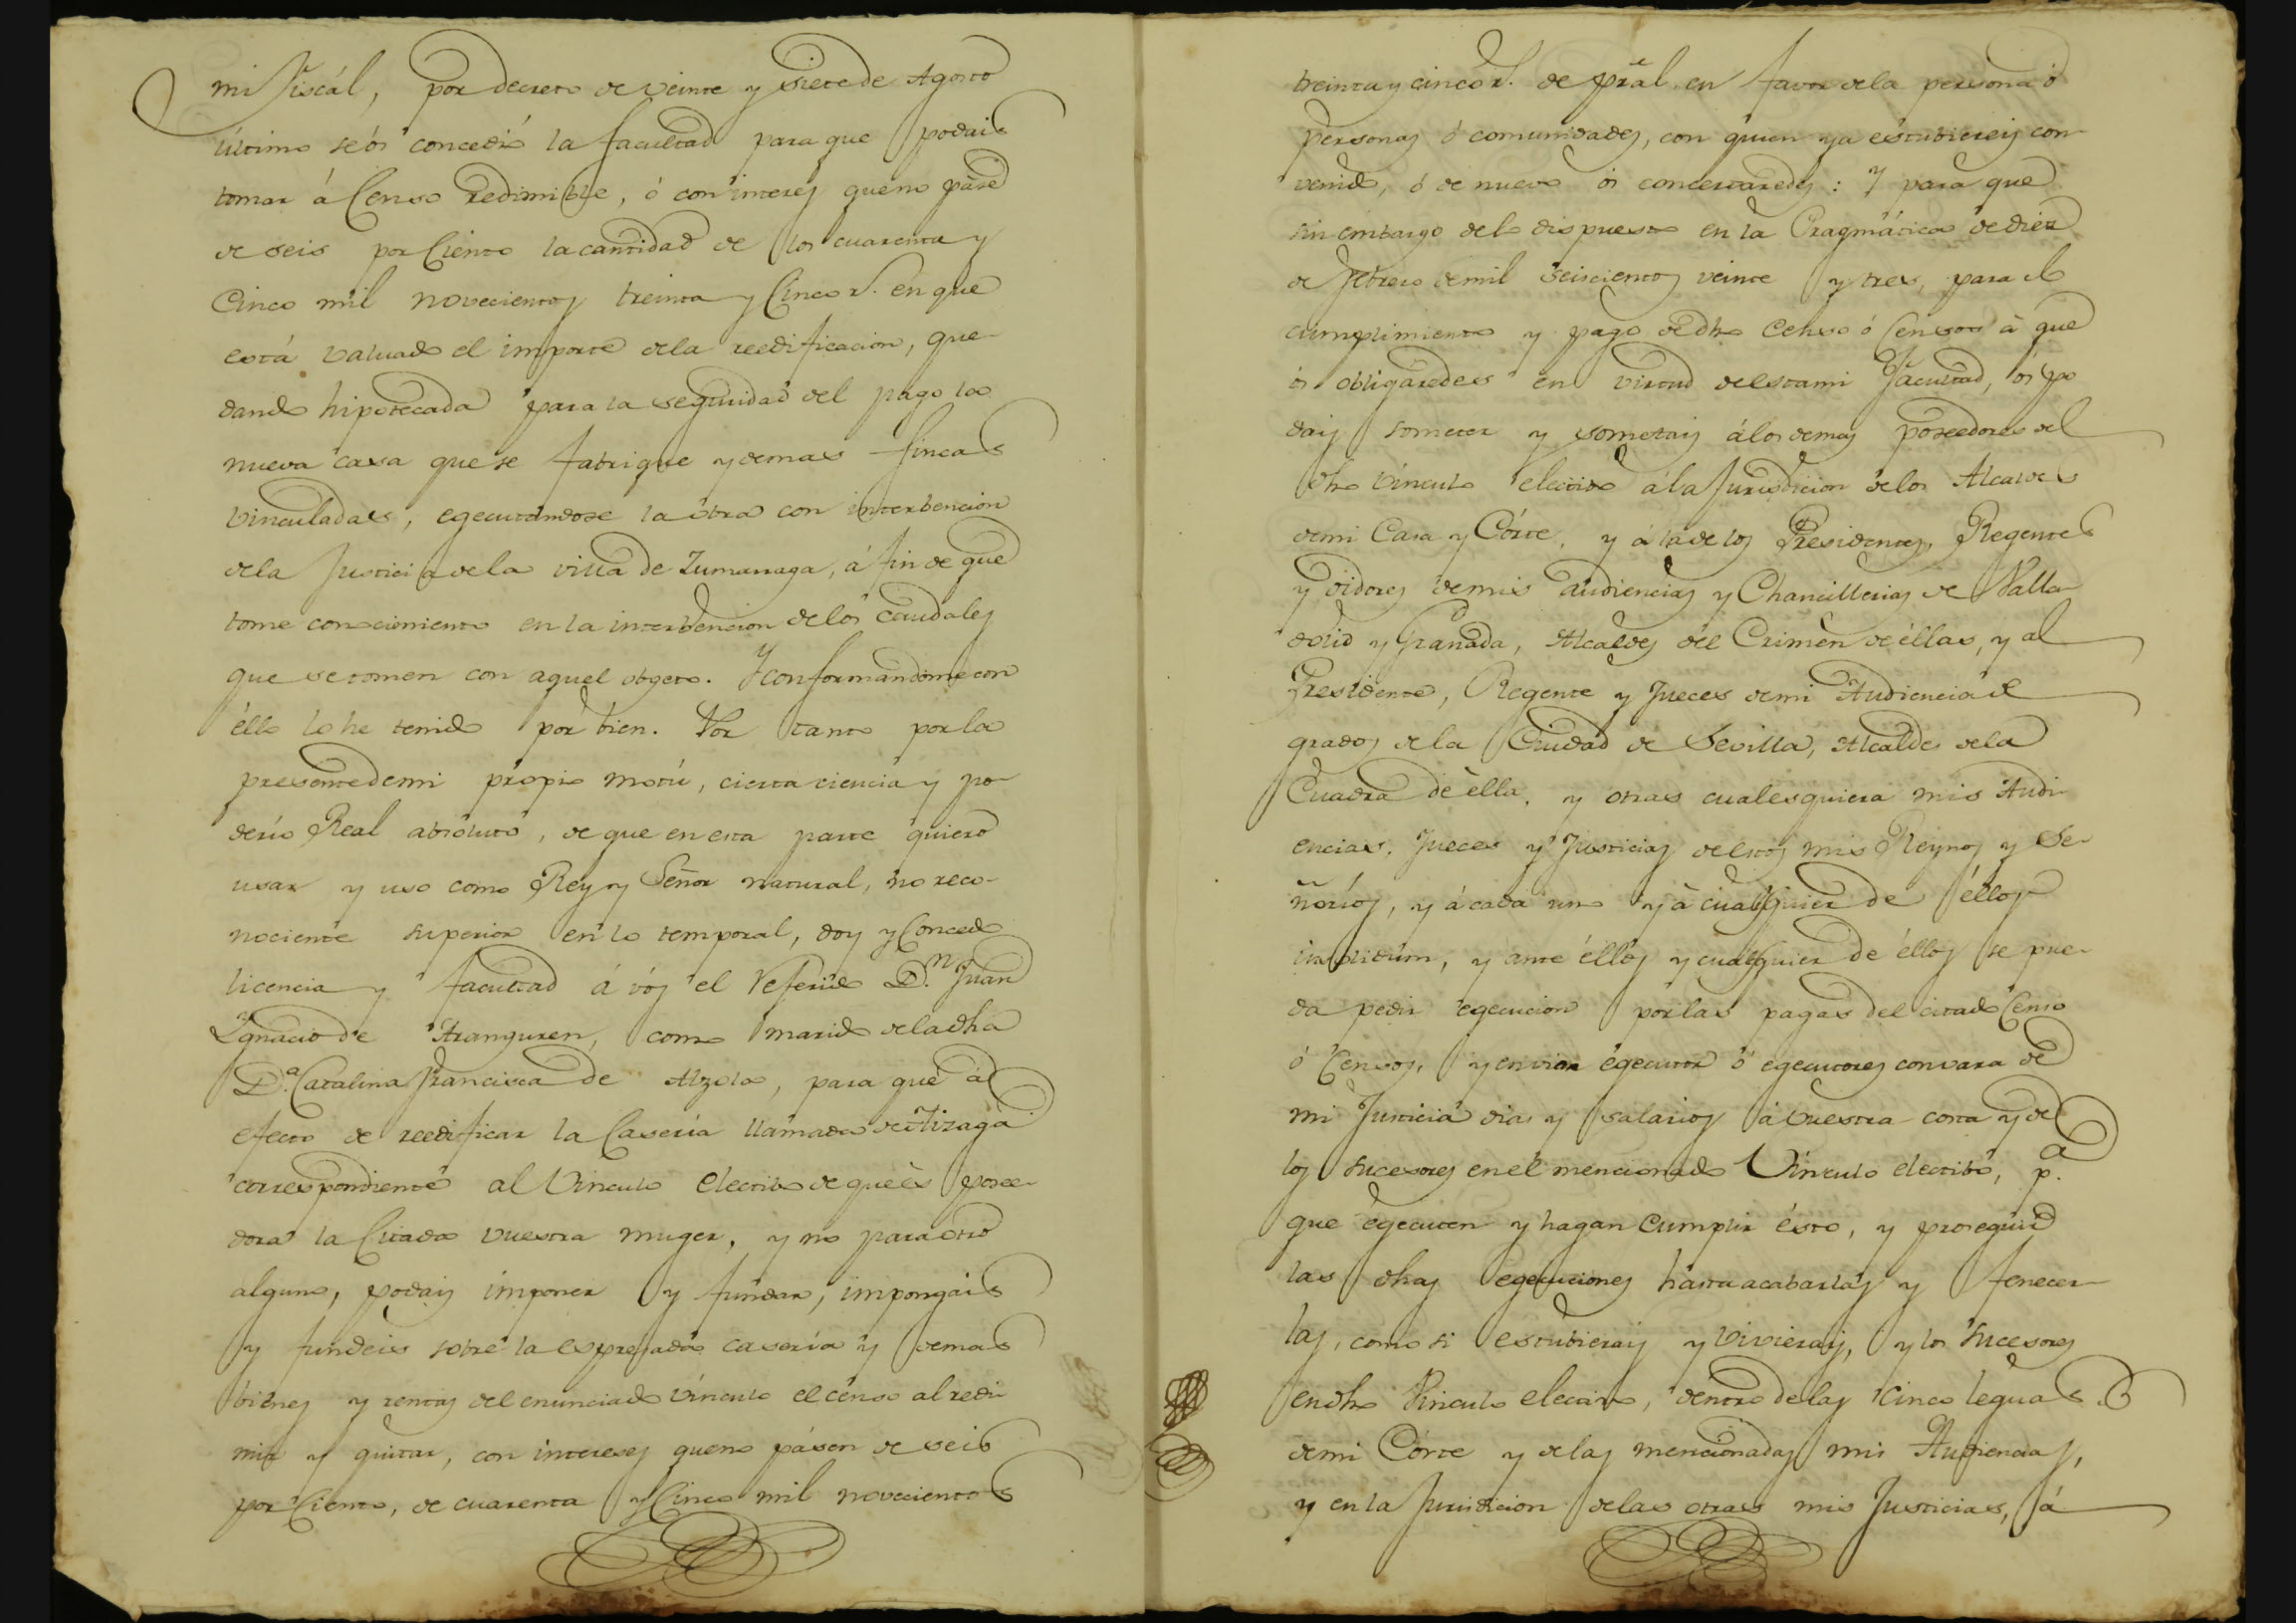 mi Fiscál, por decreto de veinte y siete de Agosto
último se ós concedió la facultad para que podais
tomar á Censo redimible, ó con interes que no pase
de seis por Ciento la cantidad de los cuarenta y
Cinco mil novecientos treinta y Cinco r.s en que
está valuado el importe dela reedificacion, que-
dando hipotecada para la seguridad del pago la
nueva casa que se fabrique y demas fincas
vinculadas, egecutandose la óbra con interbencion
dela Justicia dela villa de Zumarraga, á fin de que
tome conocimiento en la interbencion delos caudales
que se tomen con aquel obgeto. Y conformandome con
éllo lo he tenido por bien. Por tanto por la
presente de mi propio motú, cierta ciencia y po-
derío Real absoluto, de que en esta parte quiero
usar y uso como Rey y Señor natural, no reco-
nociente superior en lo temporal, doy y Concedo
licencia y facultad á vós el referido D.n Juan
Ygnacio de Aranguren, como marido dela dha
D.a Catalina Francisca de Alzola, para que á
efecto de reedificar la Casería llamada de Atizaga
correspondiente al Vinculo electibo de que ès posee-
dora la Citada vuestra muger, y no para otro
alguno, podais imponer y fundar, impongais
y fundeis sobre la expresada casería y demas
bienes y rentas del enunciado vínculo el censo al redi-
mir y quitar, con intereses que no pásen de seis
por Ciento, de cuarenta y Cinco mil novecientos
treinta y cinco r.s de pral. en favor dela persona ó
personas ó comunidades, con quien ya estubiereis con-
venido, ó de nuevo ós concertaredes: Y para que
sin embargo delo dispuesto en la Pragmática de diez
de Febrero de mil seiscientos veinte y tres, para el
cumplimiento y pago de dho Censo ó Censos à que
ós obligáredes en virtud de esta mi Facultad, ós po-
dais someter y sometais álos demas poseedores del
dho vínculo electibo á la Jurisdicion de los Alcaldes
de mi Casa y Córte, y á la de los Presidentes, Regentes
y Oidores de mis audiencias y Chancillerias de Valla-
dolid y Granada, Alcaldes del Crimen de éllas, y al
Presidente, Regente y Jueces de mi Audiencia de
grados de la Ciudad de Sevilla, Alcaldes dela
Cuadra de èlla, y otras cualesquiera mis Audi-
encias, Jueces y Justicias de estos mis Reynos y Se-
ñoríos, y á cada uno y à cualquier de éllos
insolidúm, y ante éllos y cualquier de éllos se pue-
da pedir egecucion por las pagas del citado Censo
ó Censos, y enviar egecutor ó egecutores con vara de
mi Justicia dias y salarios á vuestra costa y de
los sucesores en el mencionado Vínculo electibo, p.a
que egecuten y hagan cumplir ésto, y proseguir
las dhas egecuciones hasta acabarlas y fenecer-
las, como si estubierais y vivierais, y los sucesores
en dho Vinculo electibo, dentro de las Cinco leguas
de mi Córte y de las mencionadas mis Audiencias,
y en la Jurisdicion de las otras mis Justicias, á